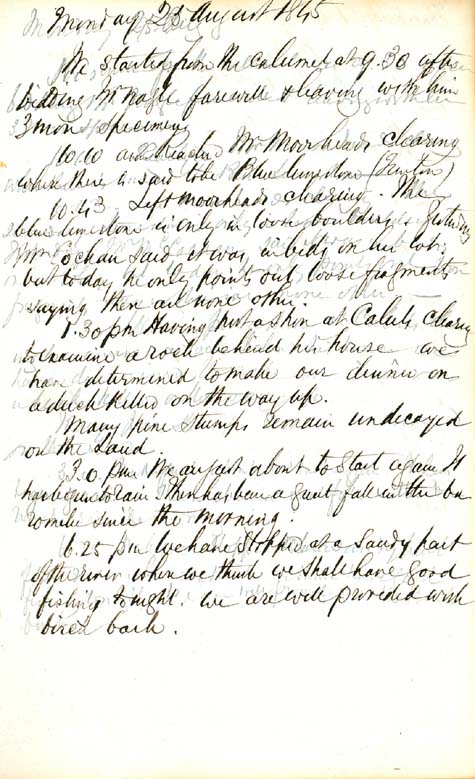 Monday 25 August 1845
We started from the Calumet at 9.30 after
bidding Mr Nagle farewell & leaving with him
3 more specimens
10.10 am Reached Mr Moorheads clearing
where there is said to be Blue limestone (Trenton)
10.43 Left Moorheads clearing. The
blue limestone is only in loose boulders, yesterday
Mr said it was in beds on his lot;
but today he only points out loose fragments
saying there are none other.
1.30 pm Having put ashore at Calebs clearing
to examine a rock behind his house we
have determined to make our dinner on
a duck killed on the way up.
Many pine stumps remain undecayed
on the land.
3.0 pm We are just about to start again It
has begun to rain There has been a great fall in the ba
rometer since the morning.
6.25 pm We have stopped at a sandy part
of the river where we think we shall have good
fishing tonight. We are well provided with
birch bark.